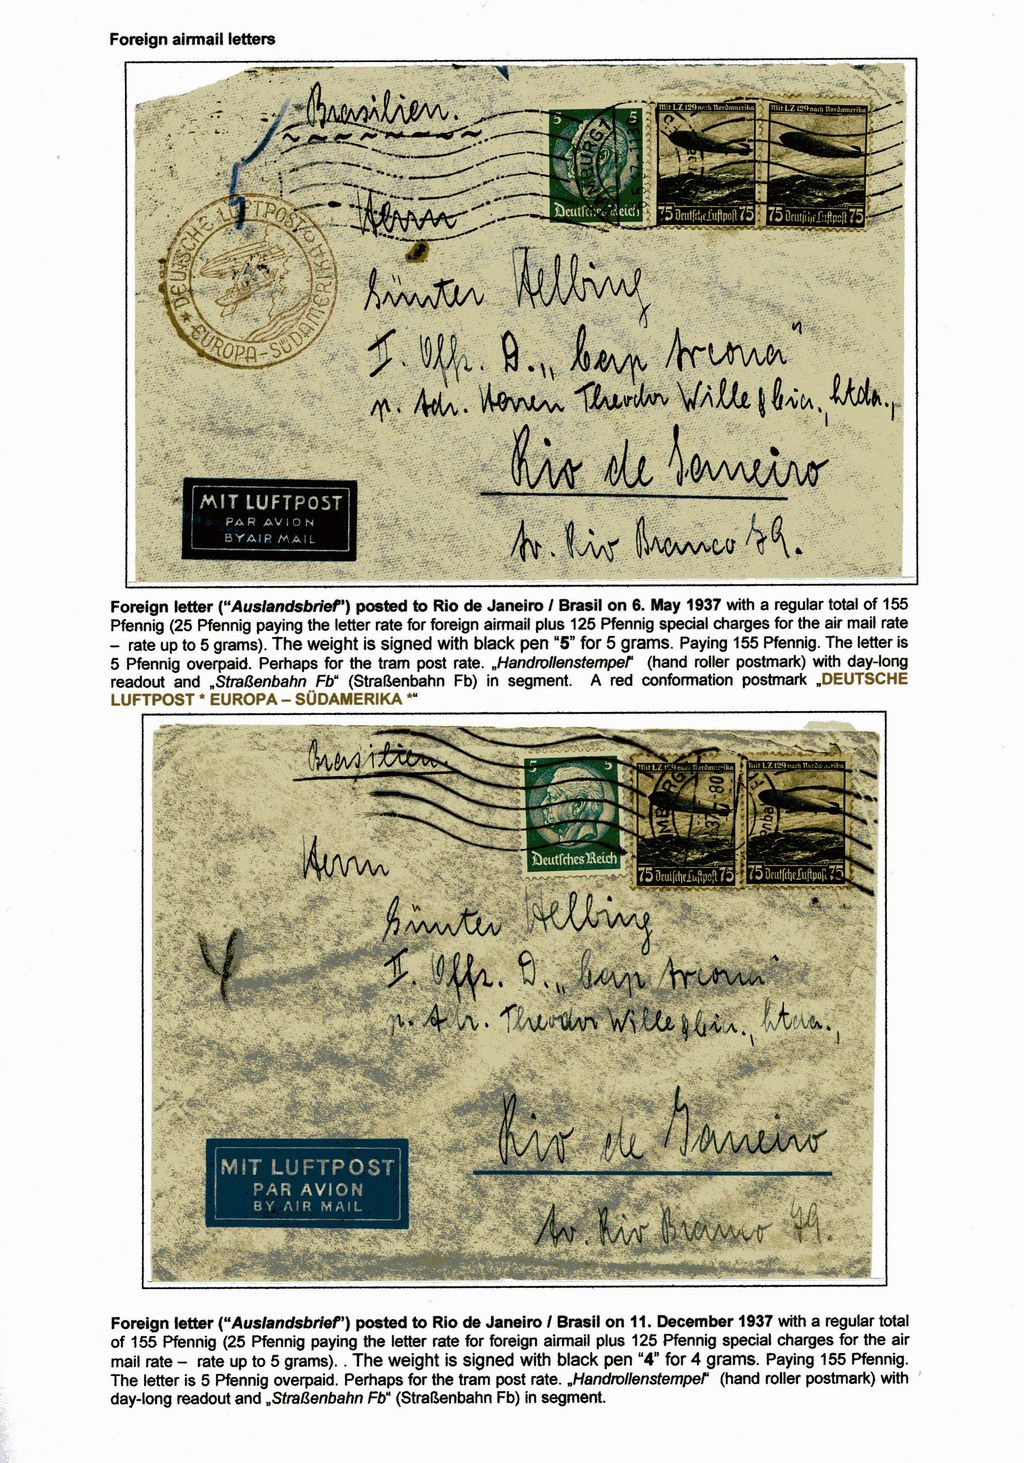 Foreign airmail letters
Brasilien.
5 5
Mit LZ 129 nach Nordamerika Mit LZ 129 nach Nordamerika
HAMBURG 1
Deutsches Reich
75 Deutsche Luftpost 75 75 Deutsche Luftpost 75
DEUTSCHE LUFTPOST
* EUROPA-SÜDAMERIKA
Herrn
Günter Helbing
II. Offz. D. „Cap Arcona"
p. Adr. Herren Theodor Wille & Cia., Ltda.,
Rio de Janeiro
Av. Rio Branco 79.
MIT LUFTPOST
PAR AVION
BY AIR MAIL
Foreign letter (“Auslandsbrief”) posted to Rio de Janeiro / Brasil on 6. May 1937 with a regular total of 155
Pfennig (25 Pfennig paying the letter rate for foreign airmail plus 125 Pfennig special charges for the air mail rate
– rate up to 5 grams). The weight is signed with black pen “5” for 5 grams. Paying 155 Pfennig. The letter is
5 Pfennig overpaid. Perhaps for the tram post rate. „Handrollenstempel“ (hand roller postmark) with day-long
readout and „Straßenbahn Fb“ (Straßenbahn Fb) in segment. A red conformation postmark „DEUTSCHE
LUFTPOST * EUROPA – SÜDAMERIKA *“
Brasilien
5 5
Mit LZ 129 nach Nordamerika Mit LZ 129 nach Nordamerika
Deutsches Reich
75 Deutsche Luftpost 75 75 Deutsche Luftpost 75
Herrn
Günter Helbing
4
II. Offz. D. „Cap Arcona"
p. Adr. Theodor Wille & Cia., Ltda.,
Rio de Janeiro
Av. Rio Branco 79.
MIT LUFTPOST
PAR AVION
BY AIR MAIL
Foreign letter (“Auslandsbrief”) posted to Rio de Janeiro / Brasil on 11. December 1937 with a regular total
of 155 Pfennig (25 Pfennig paying the letter rate for foreign airmail plus 125 Pfennig special charges for the air
mail rate – rate up to 5 grams). . The weight is signed with black pen “4” for 4 grams. Paying 155 Pfennig.
The letter is 5 Pfennig overpaid. Perhaps for the tram post rate. „Handrollenstempel“ (hand roller postmark) with
day-long readout and „Straßenbahn Fb“ (Straßenbahn Fb) in segment.